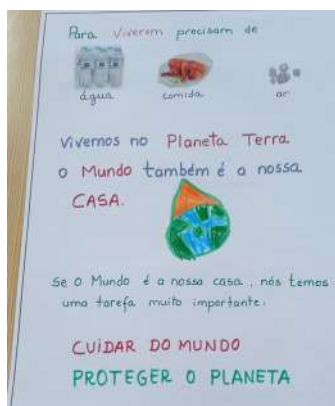 Para Viverem precisam de
água comida ar
Vivemos no Planeta Terra
o Mundo também é a nossa
CASA.
Se o Mundo é a nossa casa, nós temos
uma tarefa muito importante:
CUIDAR DO MUNDO
PROTEGER O PLANETA